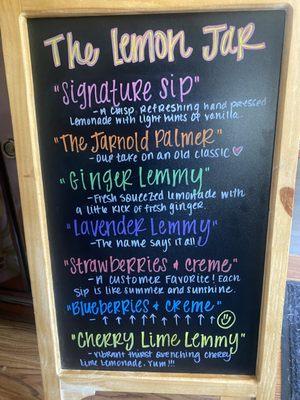 The Lemon Jar
"Signature Sip"
-A crisp. Refreshing hand pressed
Lemonade with light hints of vanilla.
"The Jarnold Palmer"
-Our take on an old classic ♡
"Ginger Lemmy"
-Fresh squeezed lemonade with
a little kick of fresh ginger.
"Lavender Lemmy"
-The name says it all
"Strawberries & creme"
-A customer favorite! Each
sip is like summer and sunshine.
"Blueberries & creme"
↑ ↑ ↑ ↑ ↑ ↑ ↑ ↑ ↑ ☺
"Cherry Lime Lemmy"
-vibrant thirst quenching cherry
lime lemonade. Yum!!!